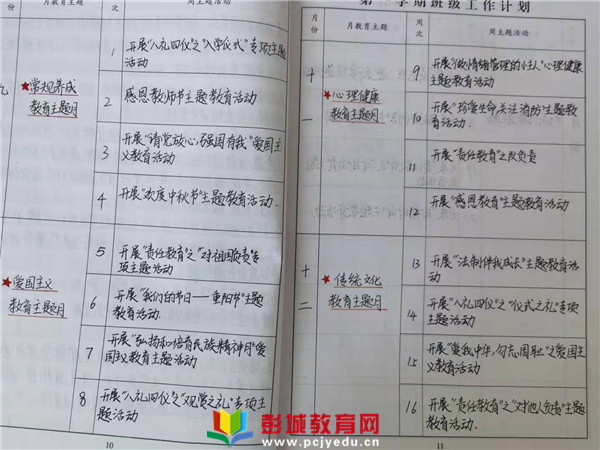 月份 月教育主题 周次 周主题活动
九
★常规养成
教育主题月
1 开展"八礼四仪"之"入学仪式"专项主题
活动
2 感恩教师节主题教育活动
3 开展"请党放心,强国有我"爱国主
义教育活动
4 开展"欢度中秋节"主题教育活动.
★爱国主义
教育主题月
5 开展"责任教育"之"对祖国负责"专
项主题活动
6 开展"我们的节日——重阳节"主题
教育活动.
7 开展"弘扬和培育民族精神月"爱
国主义教育主题活动
8 开展"八礼四仪"之"观赏之礼"专项主
题活动
10
学期班级工作计划
月份 月教育主题 周次 周主题活动
十一
★心理健康
教育主题月
9 开展"做情绪管理的小主人"心理健康
主题教育活动
10 开展"珍爱生命 关注消防"主题教
育活动.
11 开展"责任教育"之队负责
12 开展"感恩教育"主题教育活动
十二
★传统文化
教育主题月
13 开展"法制伴我成长"主题教育活
动
14 开展"八礼四仪"之"仪式之礼"专项
主题活动.
15 开展"爱我中华,勿忘国耻"之爱国主
义教育活动
16 开展"责任教育"之"对他人负责"主题
教育活动.
11
彭城教育网
www.pcjyedu.cn